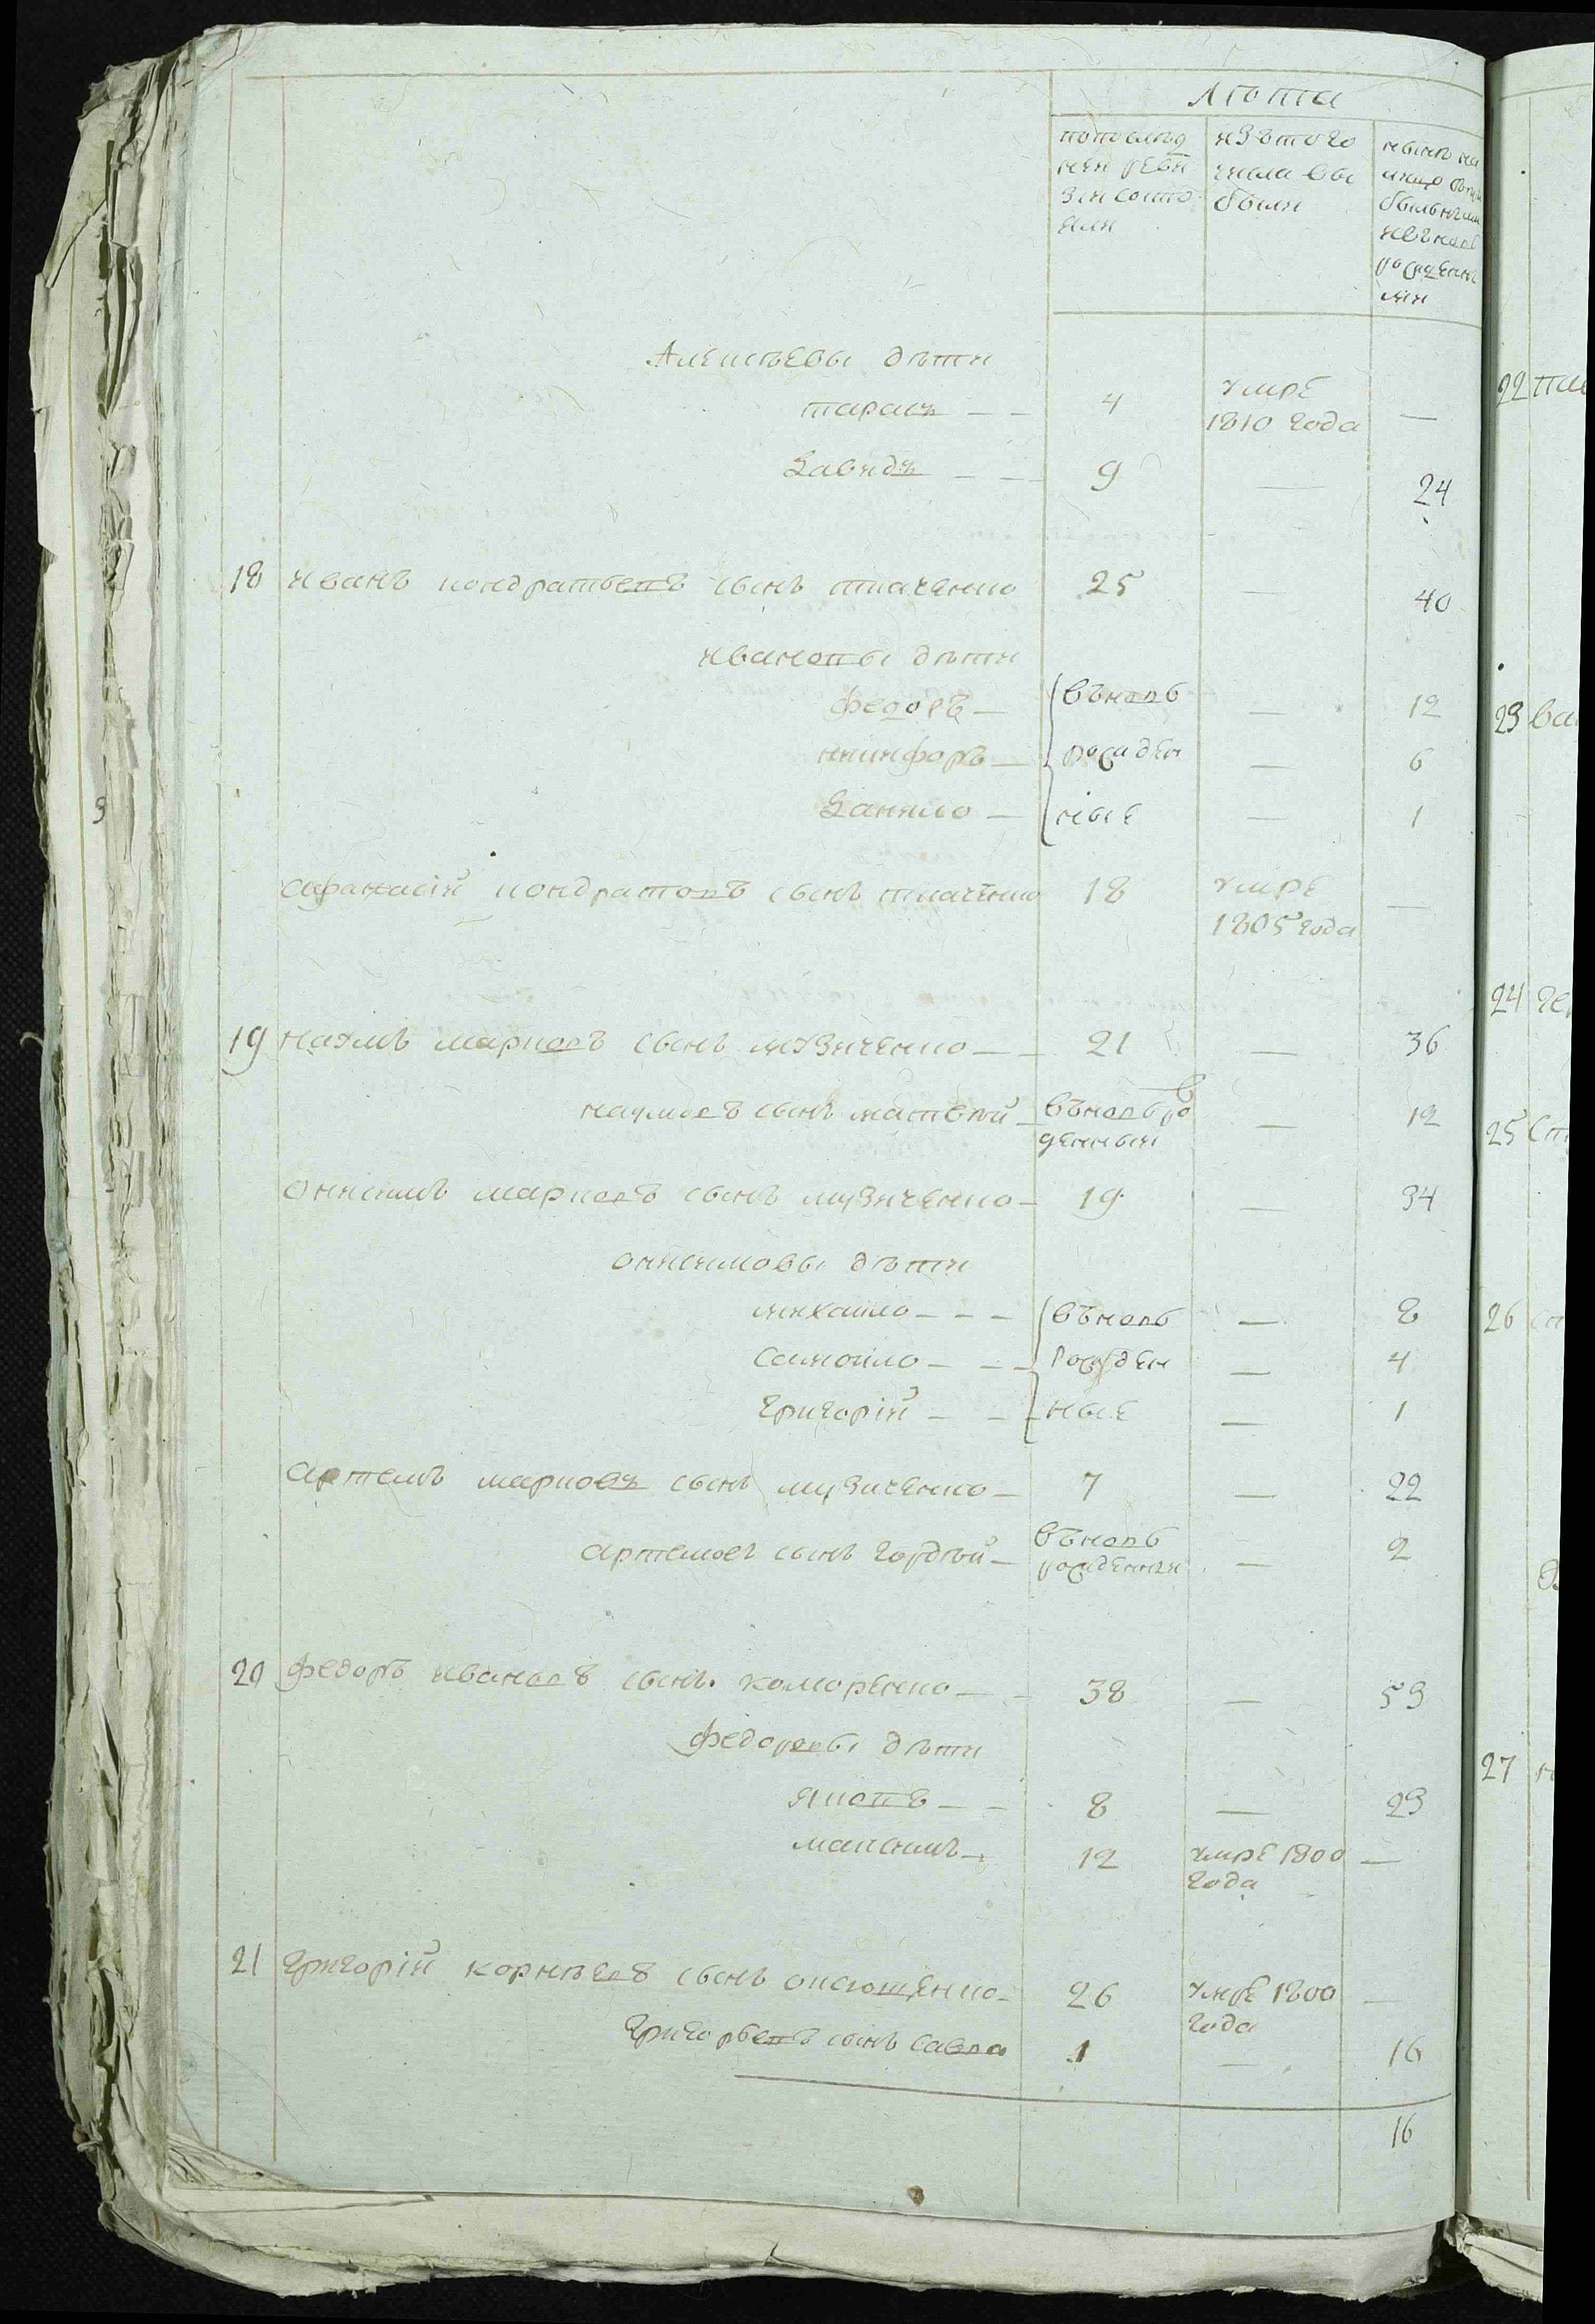 лѣта
попослѣд
ней реви
зіи состо
яли
изътого
числа вы
были
нынѣ на
лицо
рожденны
ми
Алексѣевы дѣти
тарасъ — — 4 умре —
1810 года
Давидъ — — 9 — 24
18 иванъ кондратьевъ сынъ ткаченко 25 — 40
ивановы дѣти
федоръ — вновь — 12
никифоръ — рожден — 6
Данило — ные — 1
афанасій кондратовъ сынъ ткаченко 18 умре —
1805 года
19 наумъ марковъ сынъ музиченко — — 21 — 36
наумовъ сынъ матвѣй въновь ро — 12
жденный
онисимъ марковъ сынъ музиченко — 19 — 34
онисимовы дѣти
михайло — — — въновь — 8
самойло — — — рожден — 4
григорій — — — ные — 1
артемъ марковъ сынъ музиченко — 7 — 22
артемовъ сынъ гордѣй — въновь — 2
рожденныи
20 федоръ ивановъ сынъ коморенко — — 38 — 53
федоровы дѣти
яковъ — — 8 — 23
максимъ — 12 умре 1800 —
года
21 григорій корнѣевъ сынъ оксютенко — 26 умре 1800 —
года
григорьевъ сынъ савва 1 — 16
16
22
23 ва
24
25
26
27